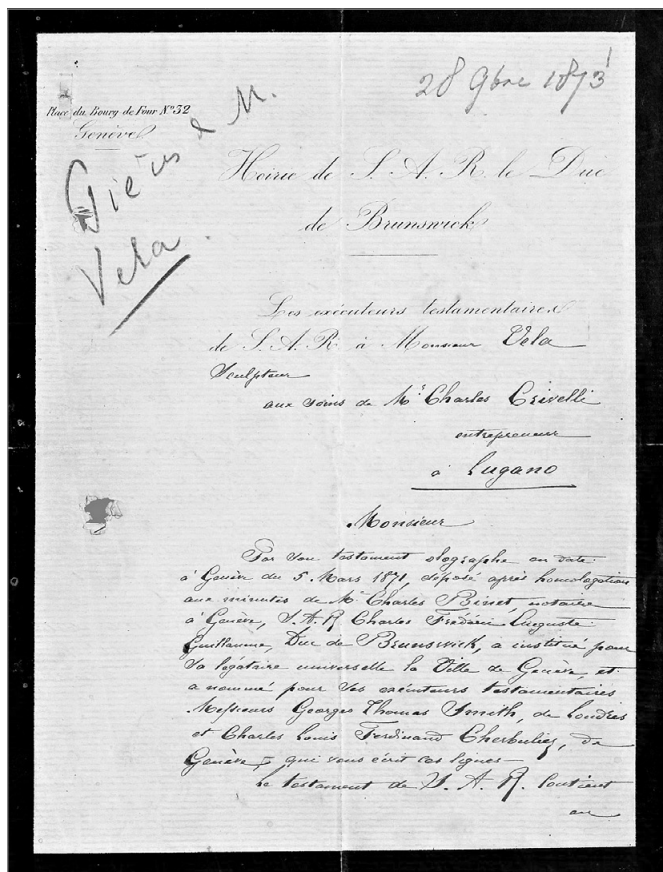 28 9bre 1873
Place du Bourg-de-Four Nº 32
Genève
Pièces à M.
Vela.
Hoirie de S. A. R. le Duc
de Brunswick
Les exécuteurs testamentaires
de S. A. R. à Monsieur Vela
Sculpteur
aux soins de Mr. Charles Crivelli
entrepreneur
à Lugano
Monsieur
Par son testament olographe en date
à Genève du 5. Mars 1871, déposé après homologation
aux minutes de Mr. Charles Binet, notaire
à Genève, S. A. R Charles Frédéric Auguste
Guillaume, Duc de Brunswick, a institué pour
sa légataire universelle la Ville de Genève, et
a nommé pour ses exécuteurs testamentaires
Messieurs Georges Thomas Smith, de Londres
et Charles Louis Ferdinand Cherbuliez, de
Genève, qui vous écrit ces lignes —
Le testament de S. A. R. contient
au